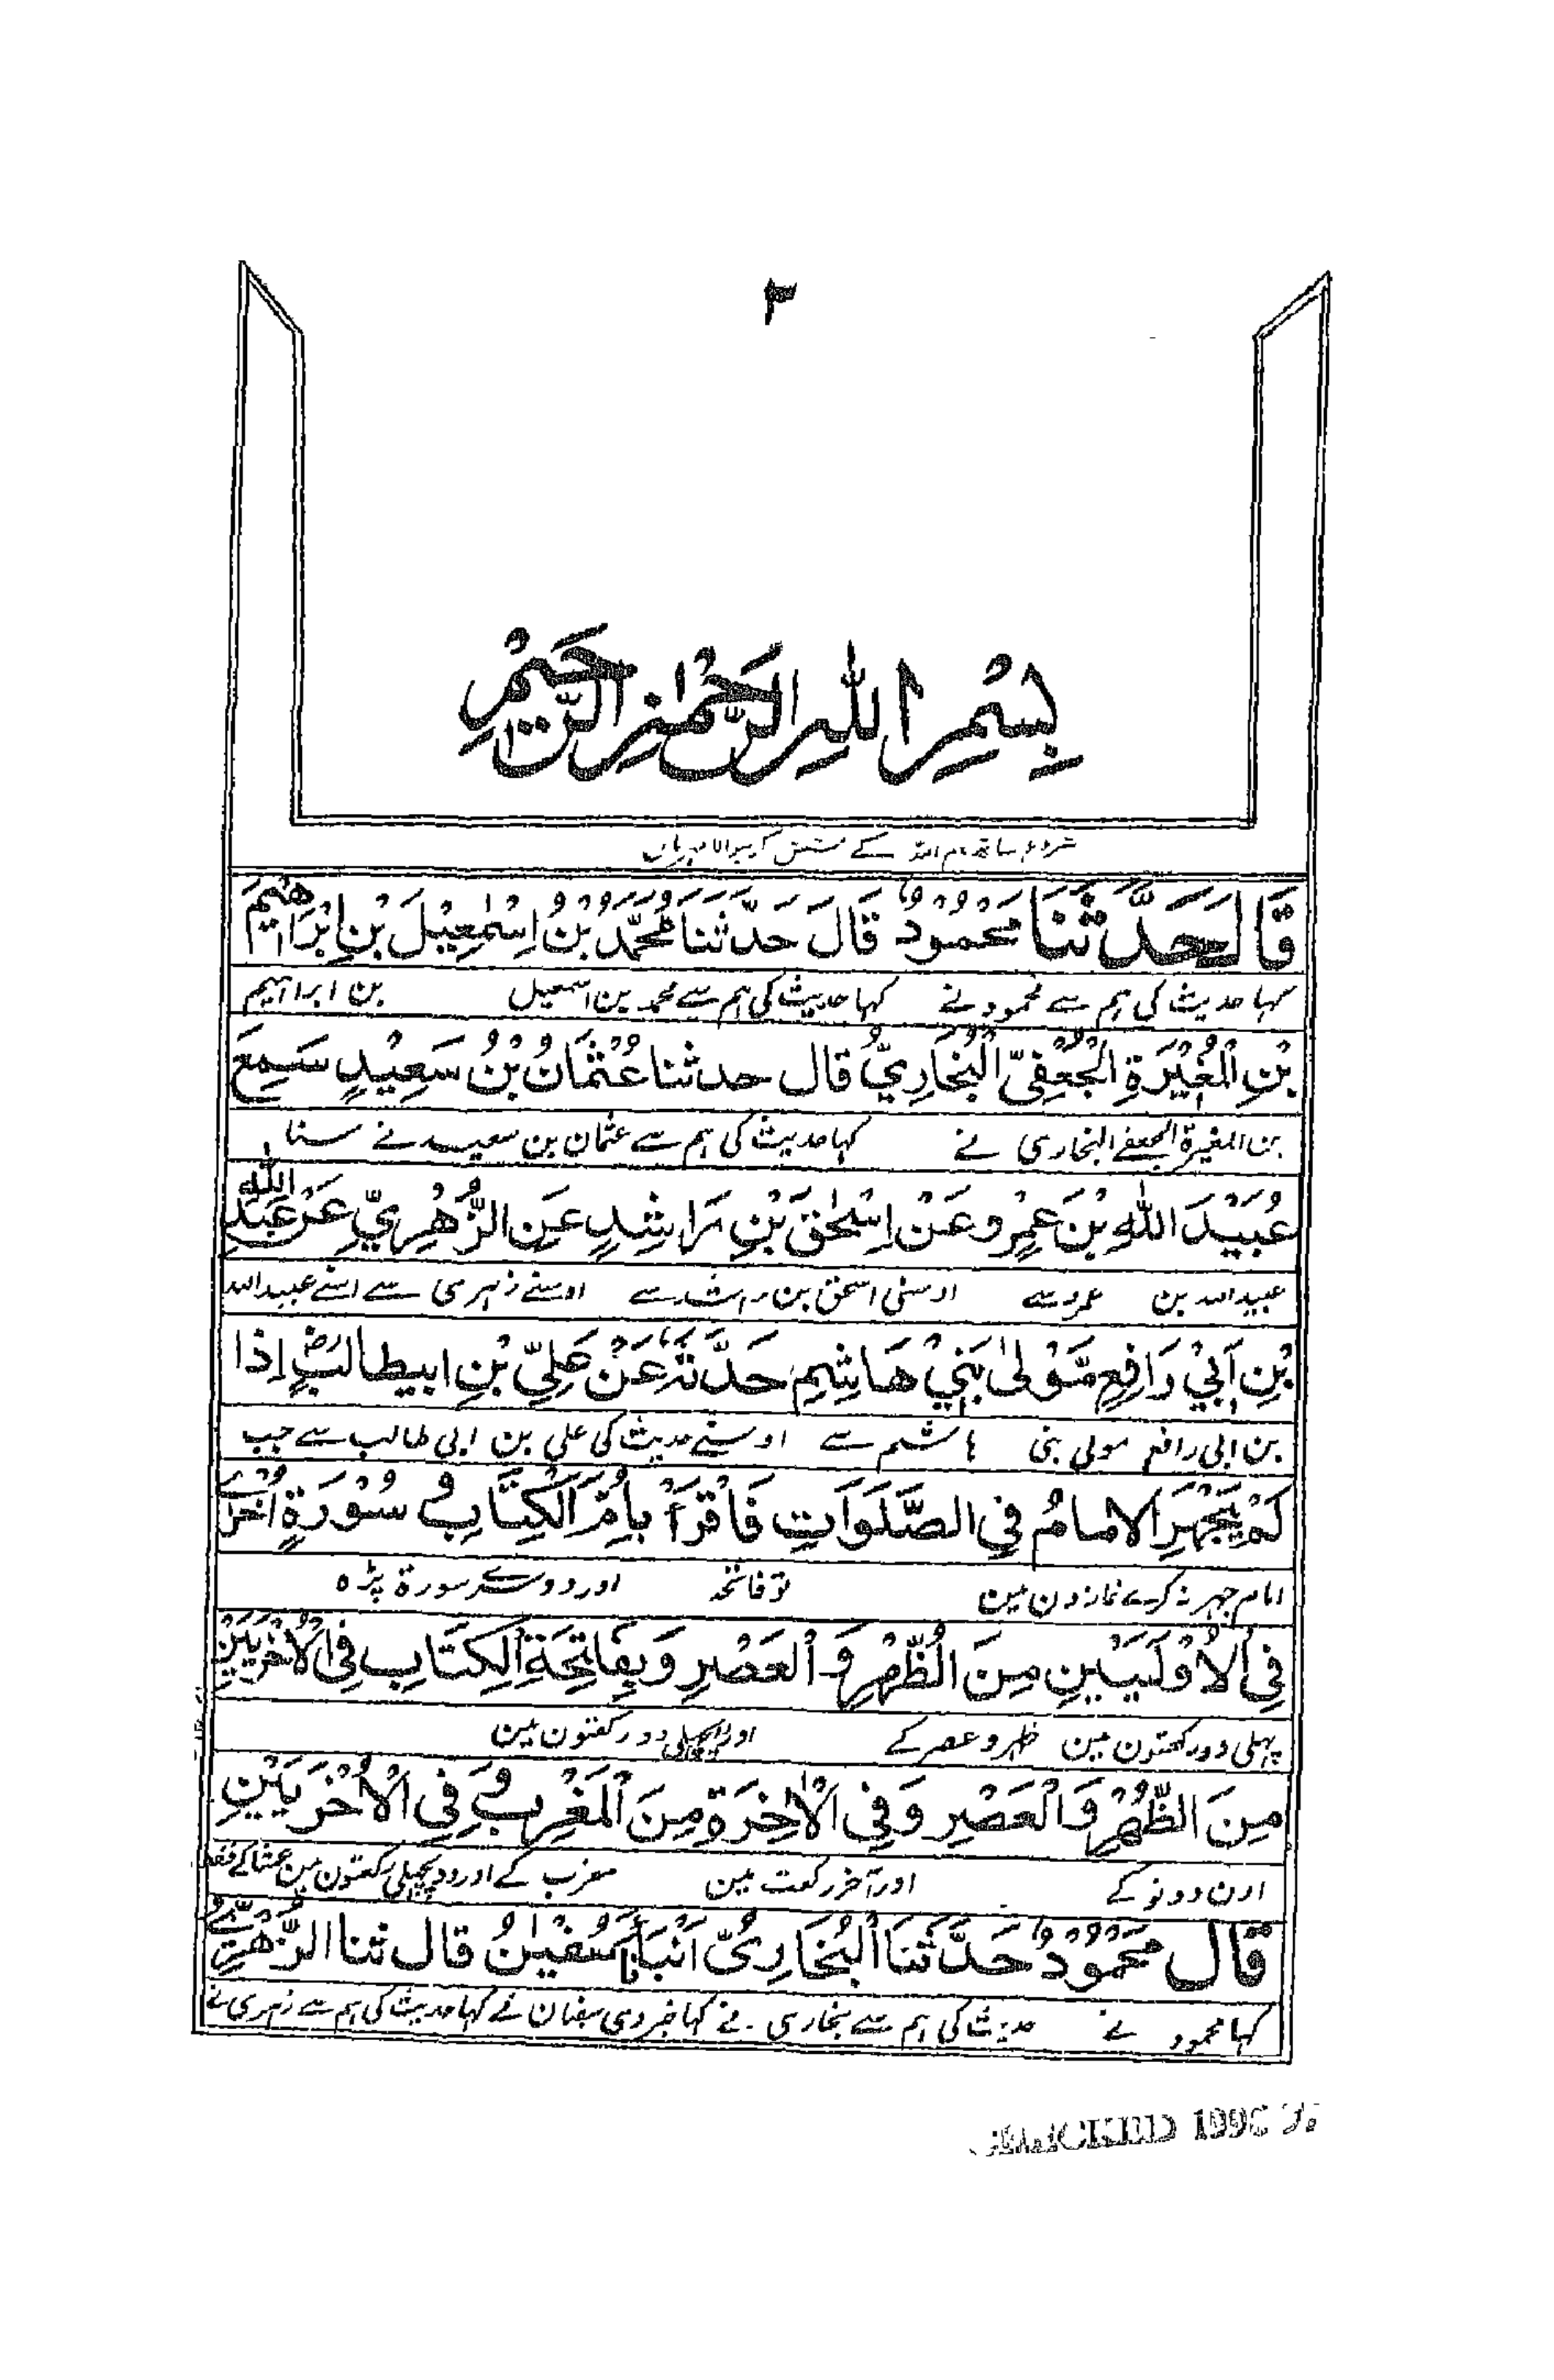 ٣
بِسْمِ اللّٰهِ الرَّحْمٰنِ الرَّحِيْمِ
شروع ساتھ نام اللہ کے بخشش کرنیوالا مہربان
قَالَ حَدَّثَنَا مَحْمُوْدٌ قَالَ حَدَّثَنَا مُحَمَّدُ بْنُ اِسْمٰعِيْلَ بْنِ اِبْرَاهِيْمَ
کہا حدیث کی ہم سے محمود نے کہا حدیث کی ہم سے محمد بن اسمعیل بن ابراہیم
بْنِ الْمُغِيْرَةِ الْجُعْفِيِّ الْبُخَارِيُّ قال حدثنا عُثْمَانُ بْنُ سَعِيْدٍ سَمِعَ
بن المغیرۃ الجعفے البخاری نے کہا حدیث کی ہم سے عثمان بن سعید نے سنا
عُبَيْدَ اللّٰهِ بْنَ عَمْرٍو عَنْ اِسْحٰقَ بْنِ رَاشِدٍ عَنِ الزُّهْرِيِّ عَنْ عَبْدِ اللّٰهِ
عبیداللہ بن عمرو سے اوسنی اسحق بن راشد سے اوسنے زہری سے اسنے عبیداللہ
بْنِ اَبِيْ رَافِعٍ مَّوْلٰى بَنِيْ هَاشِمٍ حَدَّثَهٗ عَنْ عَلِيِّ بْنِ ابيطالبٍؓ اِذَا
بن ابی رافع مولی بنی ہاشم سے اوسنے حدیث کی علی بن ابی طالب سے جب
لَمْ يَجْهَرِ الامامُ فِي الصَّلَوَاتِ فَاقْرَأْ بِاُمِّ الْكِتَابِ وَ سُوْرَةٍ اُخْرٰى
امام جہر نہ کرے نمازون مین تو فاتحہ اور دوسرے سورۃ پڑہ
فِي الْاُوْلَيَيْنِ مِنَ الظُّهْرِ وَ الْعَصْرِ وَبِفَاتِحَةِ الْكِتَابِ فِي الْاُخْرَيَيْنِ
پہلی دو رکعتون مین ظہر و عصر کے اور پچھلی دو رکعتون مین
مِنَ الظُّهْرِ وَالْعَصْرِ وَفِي الْاٰخِرَةِ مِنَ الْمَغْرِبِ وَفِي الْاُخْرَيَيْنِ
ان دونو کے اور آخر رکعت مین مغرب کے اور دو پچھلی رکعتون مین عشا کے فقط
قَالَ مَحْمُوْدٌ حَدَّثَنَا الْبُخَارِيُّ اَنْبَأَنَا سُفْيٰنُ قال ثنا الزُّهْرِيُّ
کہا محمود نے حدیث کی ہم سے بخاری نے کہا خبر دی سفیان نے کہا حدیث کی ہم سے زہری نے
CHECKED 1996-97